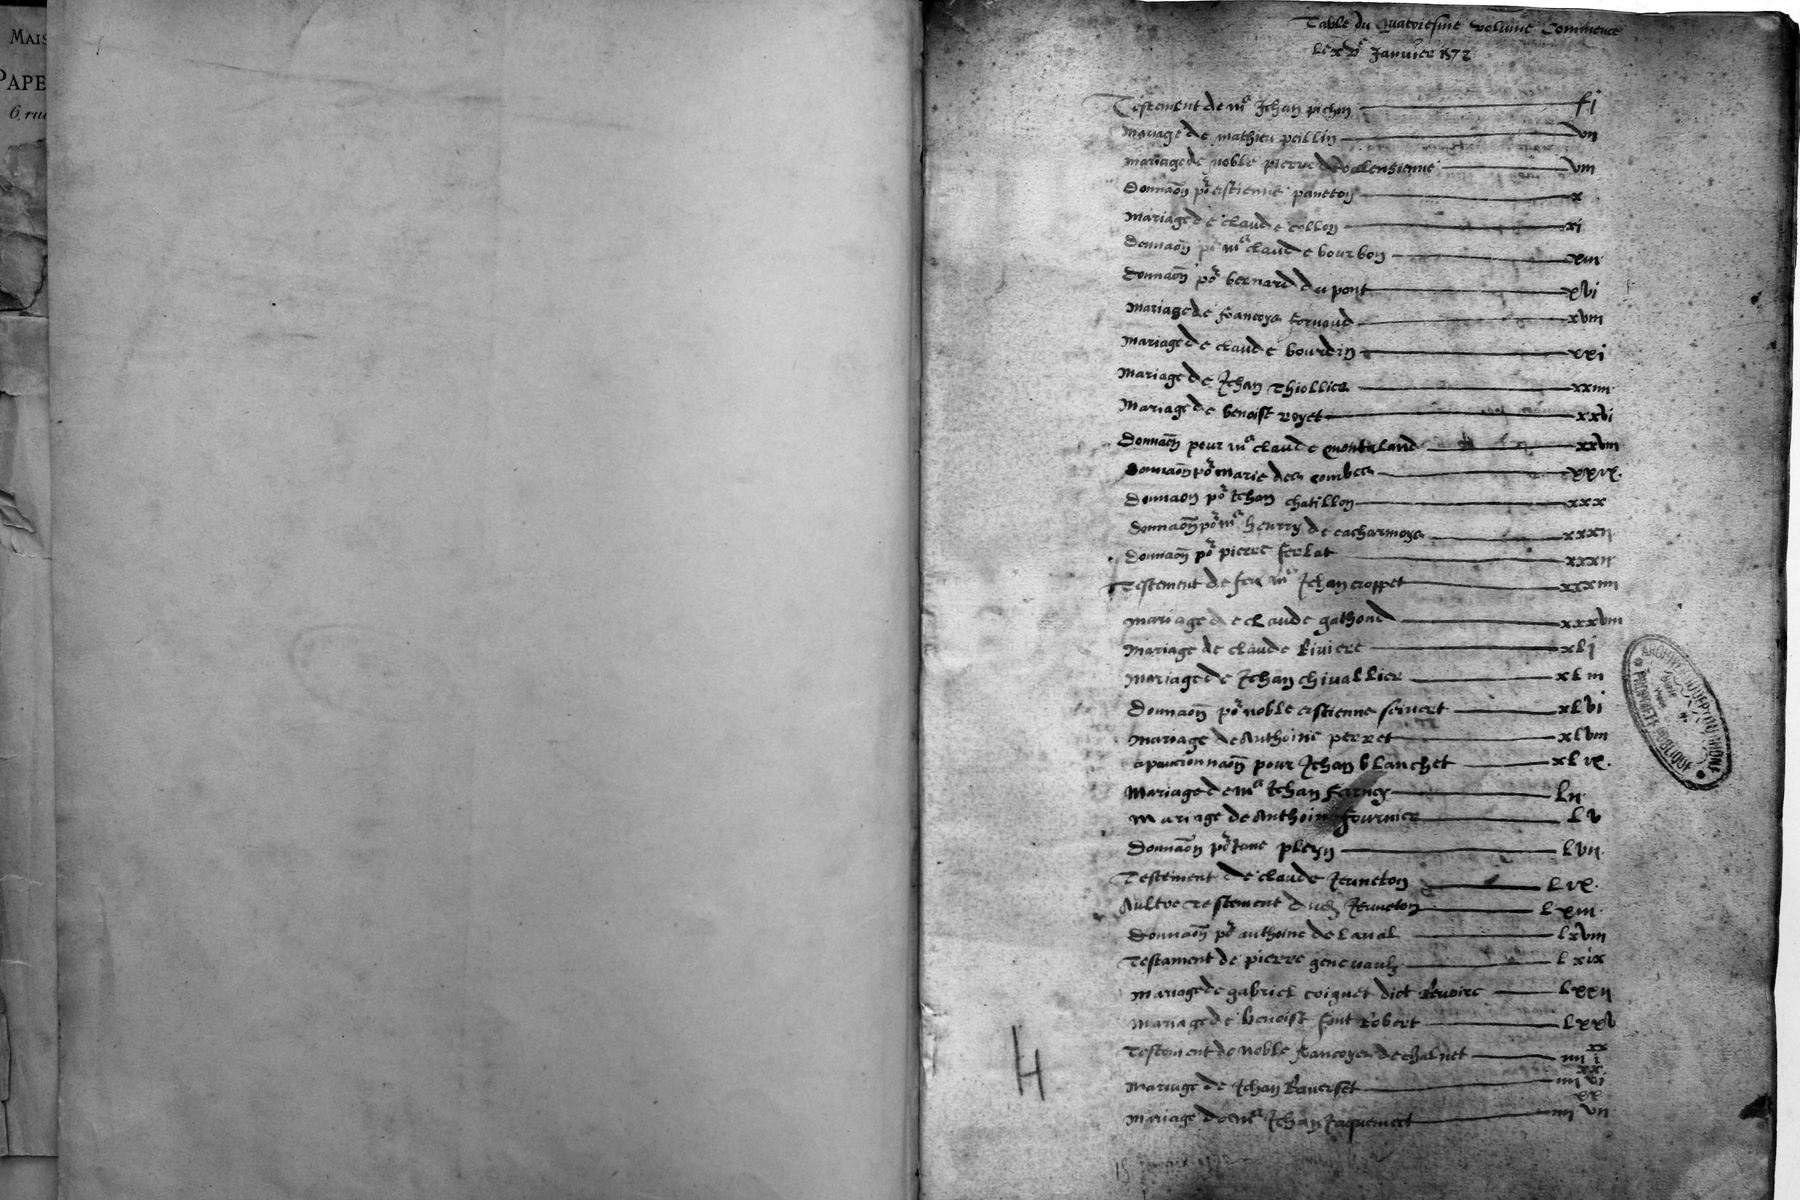 MAIS
PAPE
6, rue
Table du quatriesme volume commencé
le xve Janvier 1572
Testement de me Jehan pichon fj
mariage de mathieu peillin vii
mariage de noble pierre de valensienne viii
donnaõn por estienne paneton x
mariage de claude collon xi
donnaõn por me claude bourbon xiii
donnaõn por bernard du pont xvi
mariage de francoys fornaud xviii
mariage de claude bourdin xxi
mariage de Jehan Thiollier xxiiii
Mariage de benoist royet xxvi
donnaõn pour me claude montaland xxviii
donnaõn por marie des combes xxix
donnaon por Jehan chatillon xxx
donnaõn por me henrry de cacharmoys xxxii
donnaõn por pierre ferlat xxxii
Testement de feu me Jehan croppet xxxiiii
mariage de claude gathond xxxviii
mariage de claude Riviere xlj
mariage de Jehan chivallier xliii
donnaõn por noble estienne seivert xlvi
mariage de Anthoine perret xlviii
pour Jehan blanchet xlix
Mariage de me Jehan farney lii
mariage de Anthoine fournier lv
donnaõn por Jane pleyn lvii
Testement de claude Jeuneton lix
Aultre testement dud Jeuneton lxiii
donnaõn por anthoine de laval lxviii
Testament de pierre lxix
mariage de gabriel coignet dict Revoire lxxii
mariage de benoist font Robert lxxv
Testement de noble francoyes de chalnet iiiixx i
mariage de Jehan Raverset iiiixx vi
mariage de me Jehan Jaquemet iiiixx vii
H
15 janvier 1572
ARCHIVES DU RHONE
PROPRIETE PUBLIQUE